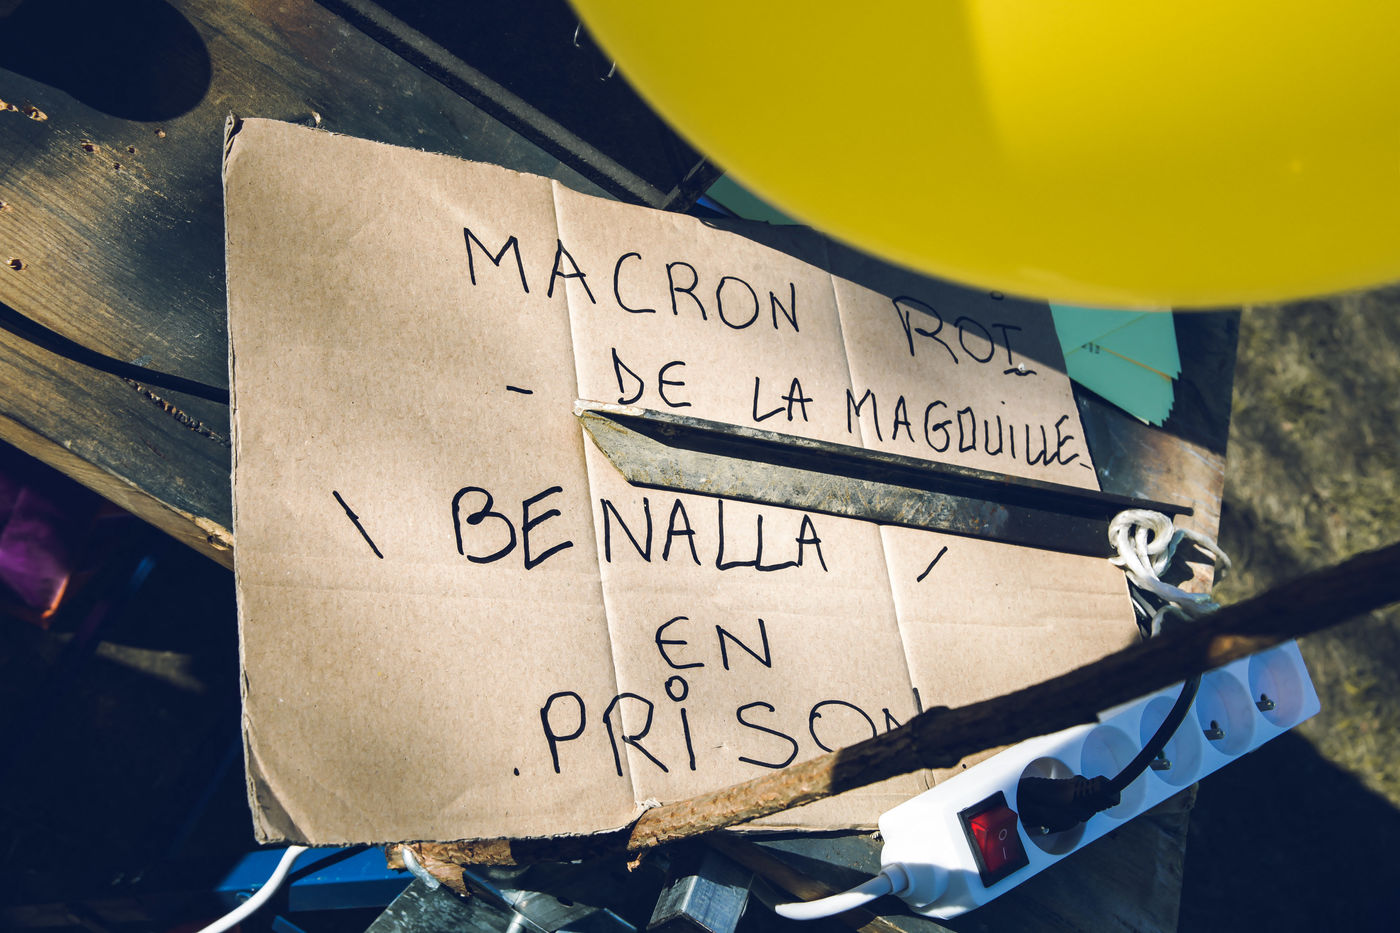 MACRON ROI
- DE LA MAGOUILLE -
\ BENALLA /
EN
.PRISON